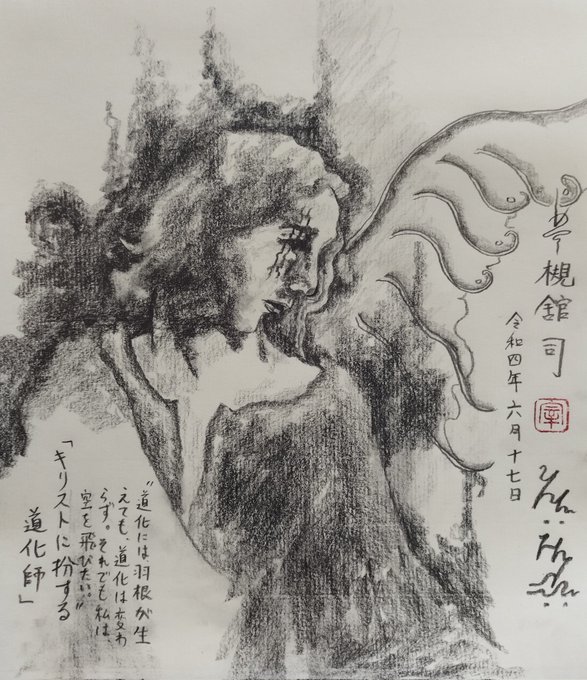 槻舘司
令和四年 六月 十七日
“道化には羽根が生
えても、道化は変わ
らず。それでも私は、
空を飛びたい。”
「キリストに扮する
道化師」